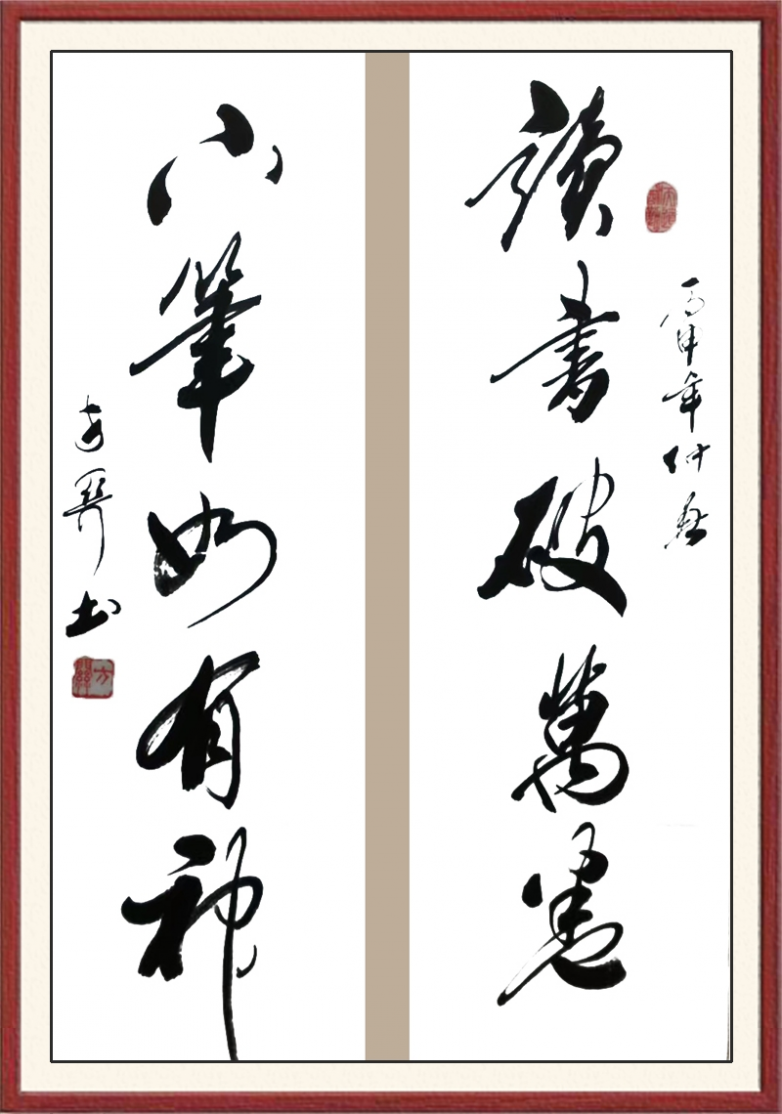 丙申年仲春
讀書破萬卷
下筆如有神
方
书